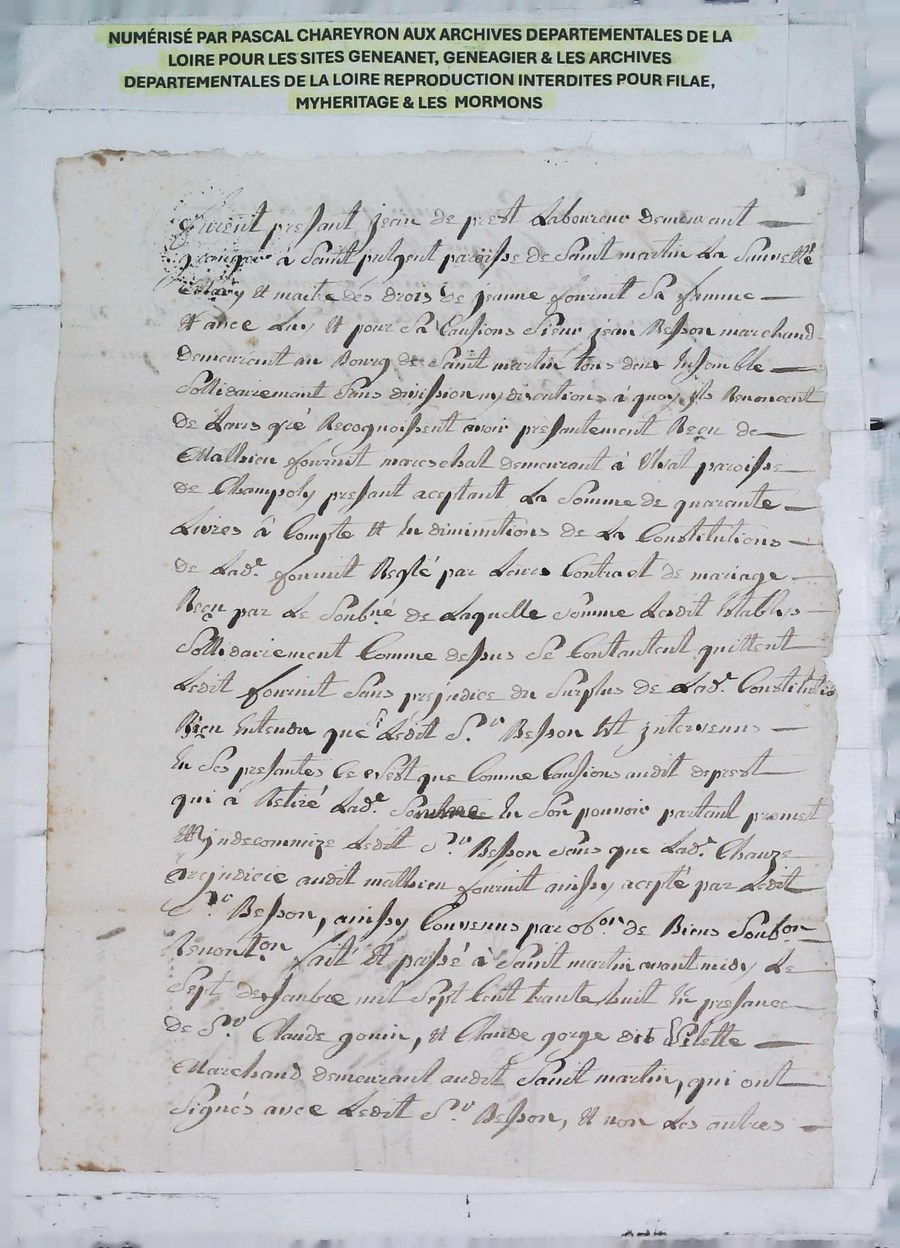 NUMÉRISÉ PAR PASCAL CHAREYRON AUX ARCHIVES DEPARTEMENTALES DE LA
LOIRE POUR LES SITES GENEANET, GENEAGIER & LES ARCHIVES
DEPARTEMENTALES DE LA LOIRE REPRODUCTION INTERDITES POUR FILAE,
MYHERITAGE & LES MORMONS
furent presant jean de prest Laboureur demeurant
granger a Saint pulgent paroisse de Saint martin La Sauvetté
Mary et maitre des drois de jeanne fournit Sa femme
et avec Luy et pour Sa Causions Sieur jean Besson marchand
demeurant au Bourg de Saint martin tous deux Insemble
Sollidairement Sans division ny discutions a quoy ils Renoncent
de Leurs gré Recognoissent avoir presantement Reçu de
Mathieu fournit mareschal demeurant à paroisse
de Champoly presant aceptant La Somme de quarante
Livres à Compte et En diminutions de La Constitutions
de Lad.e fournit Reglé par Leurs Contract de mariage
Reçu par Le Soubné de Laquelle Somme Lesdit Establys
Sollidairement Comme dessus Se Contantent quittent
Ledit fournit Sans prejudice du Surplus de Lad.e Constitutio
Bien Entendu que Si Ledit S.r Besson Est jntervenus
En Ses presantes Ce n'est que Comme Causions audit deprest
qui à Retiré Lad.e Somme En Son pouvoir partant promet
jndecommize Ledit S.r Besson Sans que Lad.e Clauze
prejudicie audit mathieu fournit ainssy acepté par Ledit
S.r Besson, ainssy Convenus par ob.on de Biens Soub.on
Renont.on fait et passé à Saint martin avant midy Le
Sept desanbre mil Sept Cent trante huit En presance
de S.r Claude gonin, et Claude gorge dit Vilette
Marchand demeurant audit Saint martin, qui ont
Signés avec Ledit S.r Besson, et non Les autres